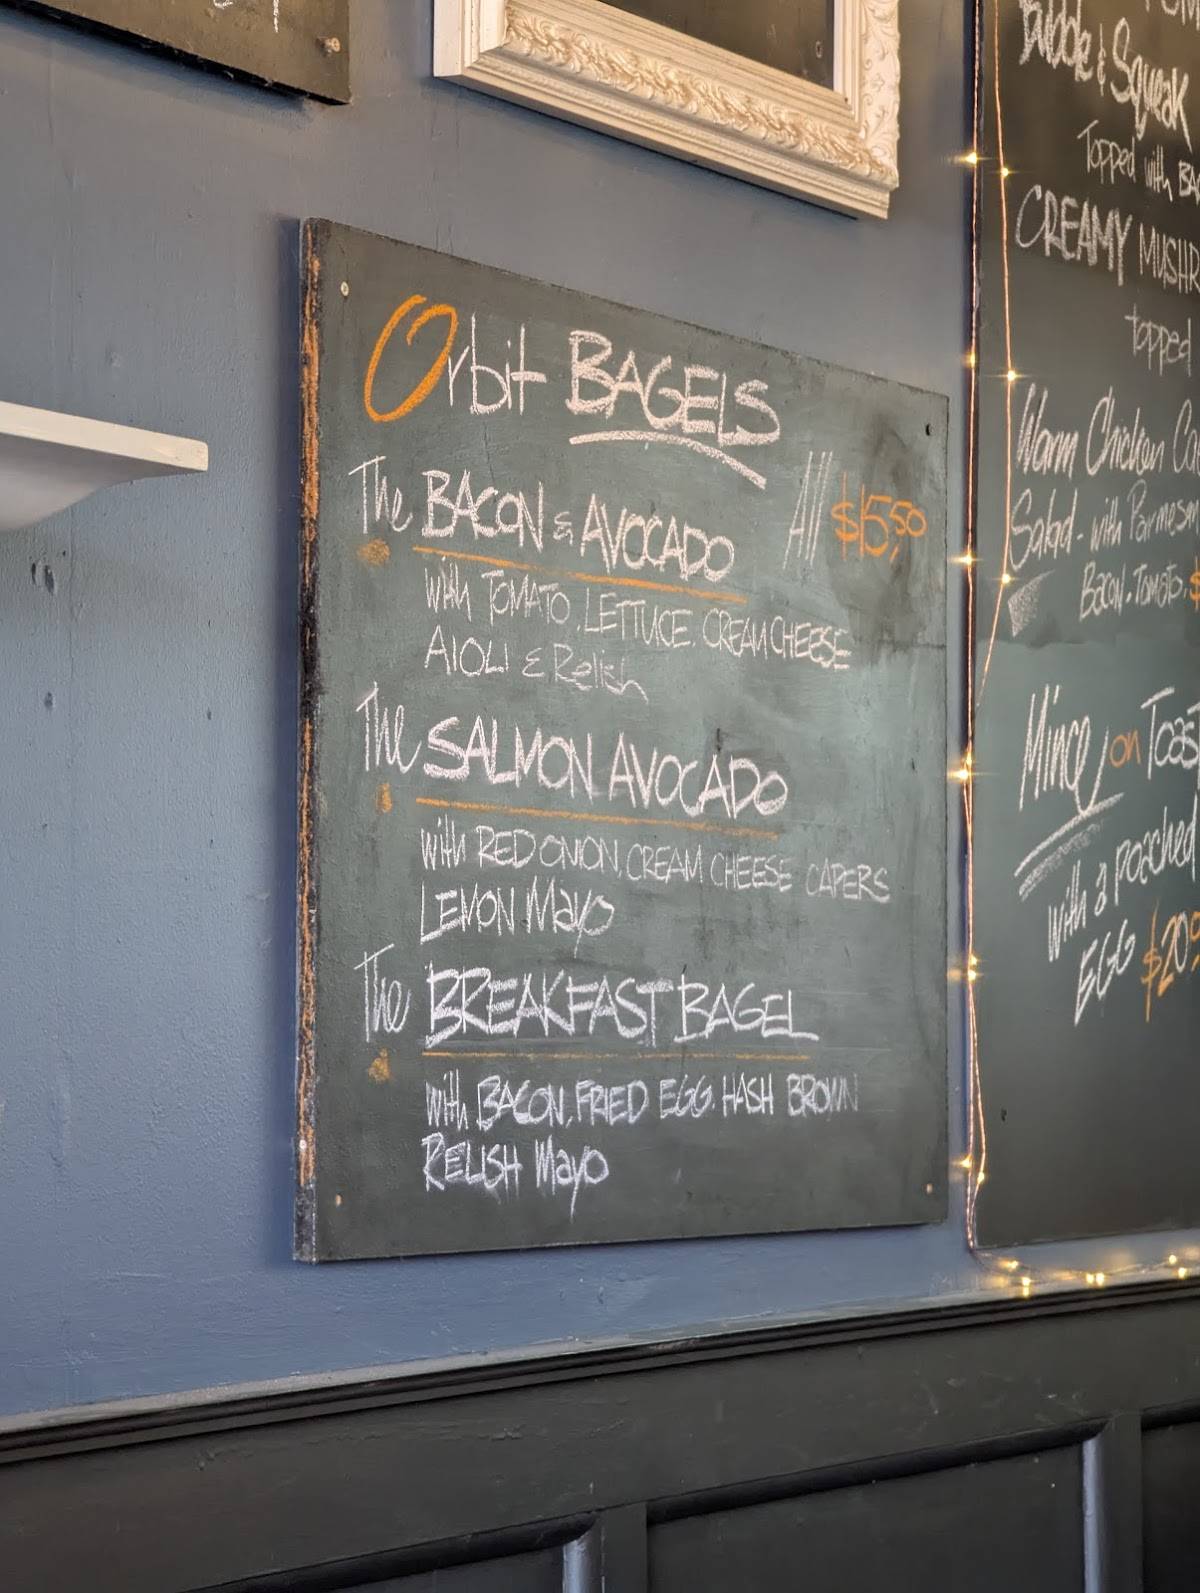 Orbit BAGELS
All $15.50
The BACON & AVOCADO
with TOMATO, LETTUCE, CREAM CHEESE
AIOLI & Relish
The SALMON AVOCADO
with RED ONION, CREAM CHEESE CAPERS
LEMON Mayo
The BREAKFAST BAGEL
with BACON, FRIED EGG, HASH BROWN
RELISH Mayo
Bubble & Squeak
Topped with
CREAMY
topped
Warm Chicken
Salad - with Parmesan
Bacon. Tomato. $
Mince on Toast
with a poached
EGG $20